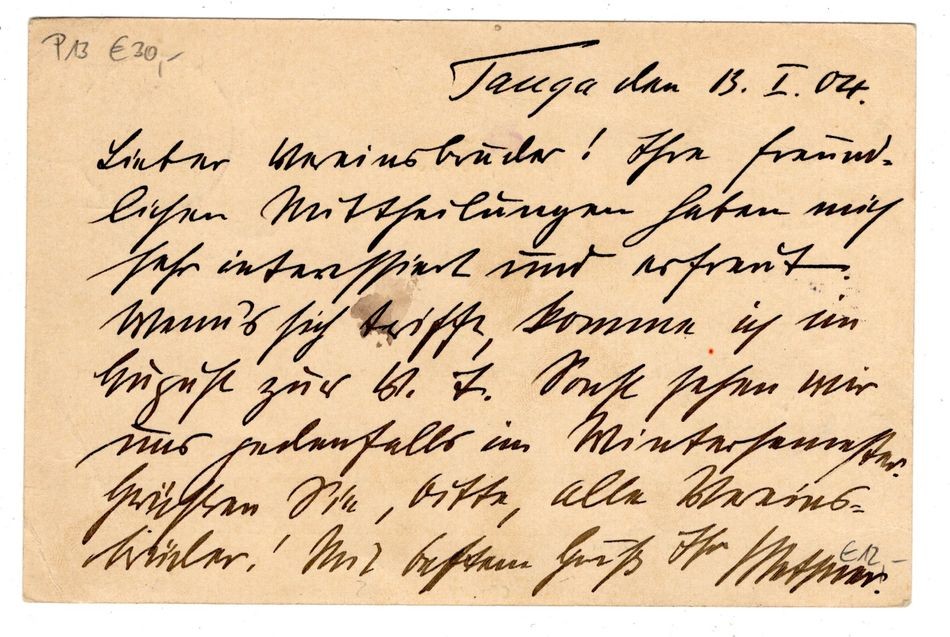 P13 € 30,-
Tanga den 13. I. 04.
Lieber Vereinsbruder! Ihre freund-
lichen Mittheilungen haben mich
sehr interessiert und erfreut.
Wenn's sich trifft, komme ich im
August zur V. T. Sonst sehen wir
uns jedenfalls im Wintersemester.
Grüssen Sie, bitte, alle Vereins=
brüder! Mit bestem Gruß Ihr
€ 12,-